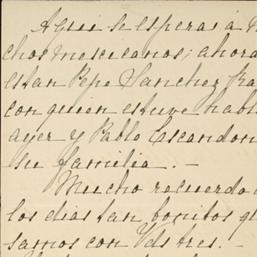 Aqui se esperas á m
chos mexicanos; ahora
estan Pepe Sanchez Ra
con quien estuve habl
ayer y Pablo Escandon
su familia. —
Mucho recuerdo
los dias tan bonitos q
samos con Vds tres. —